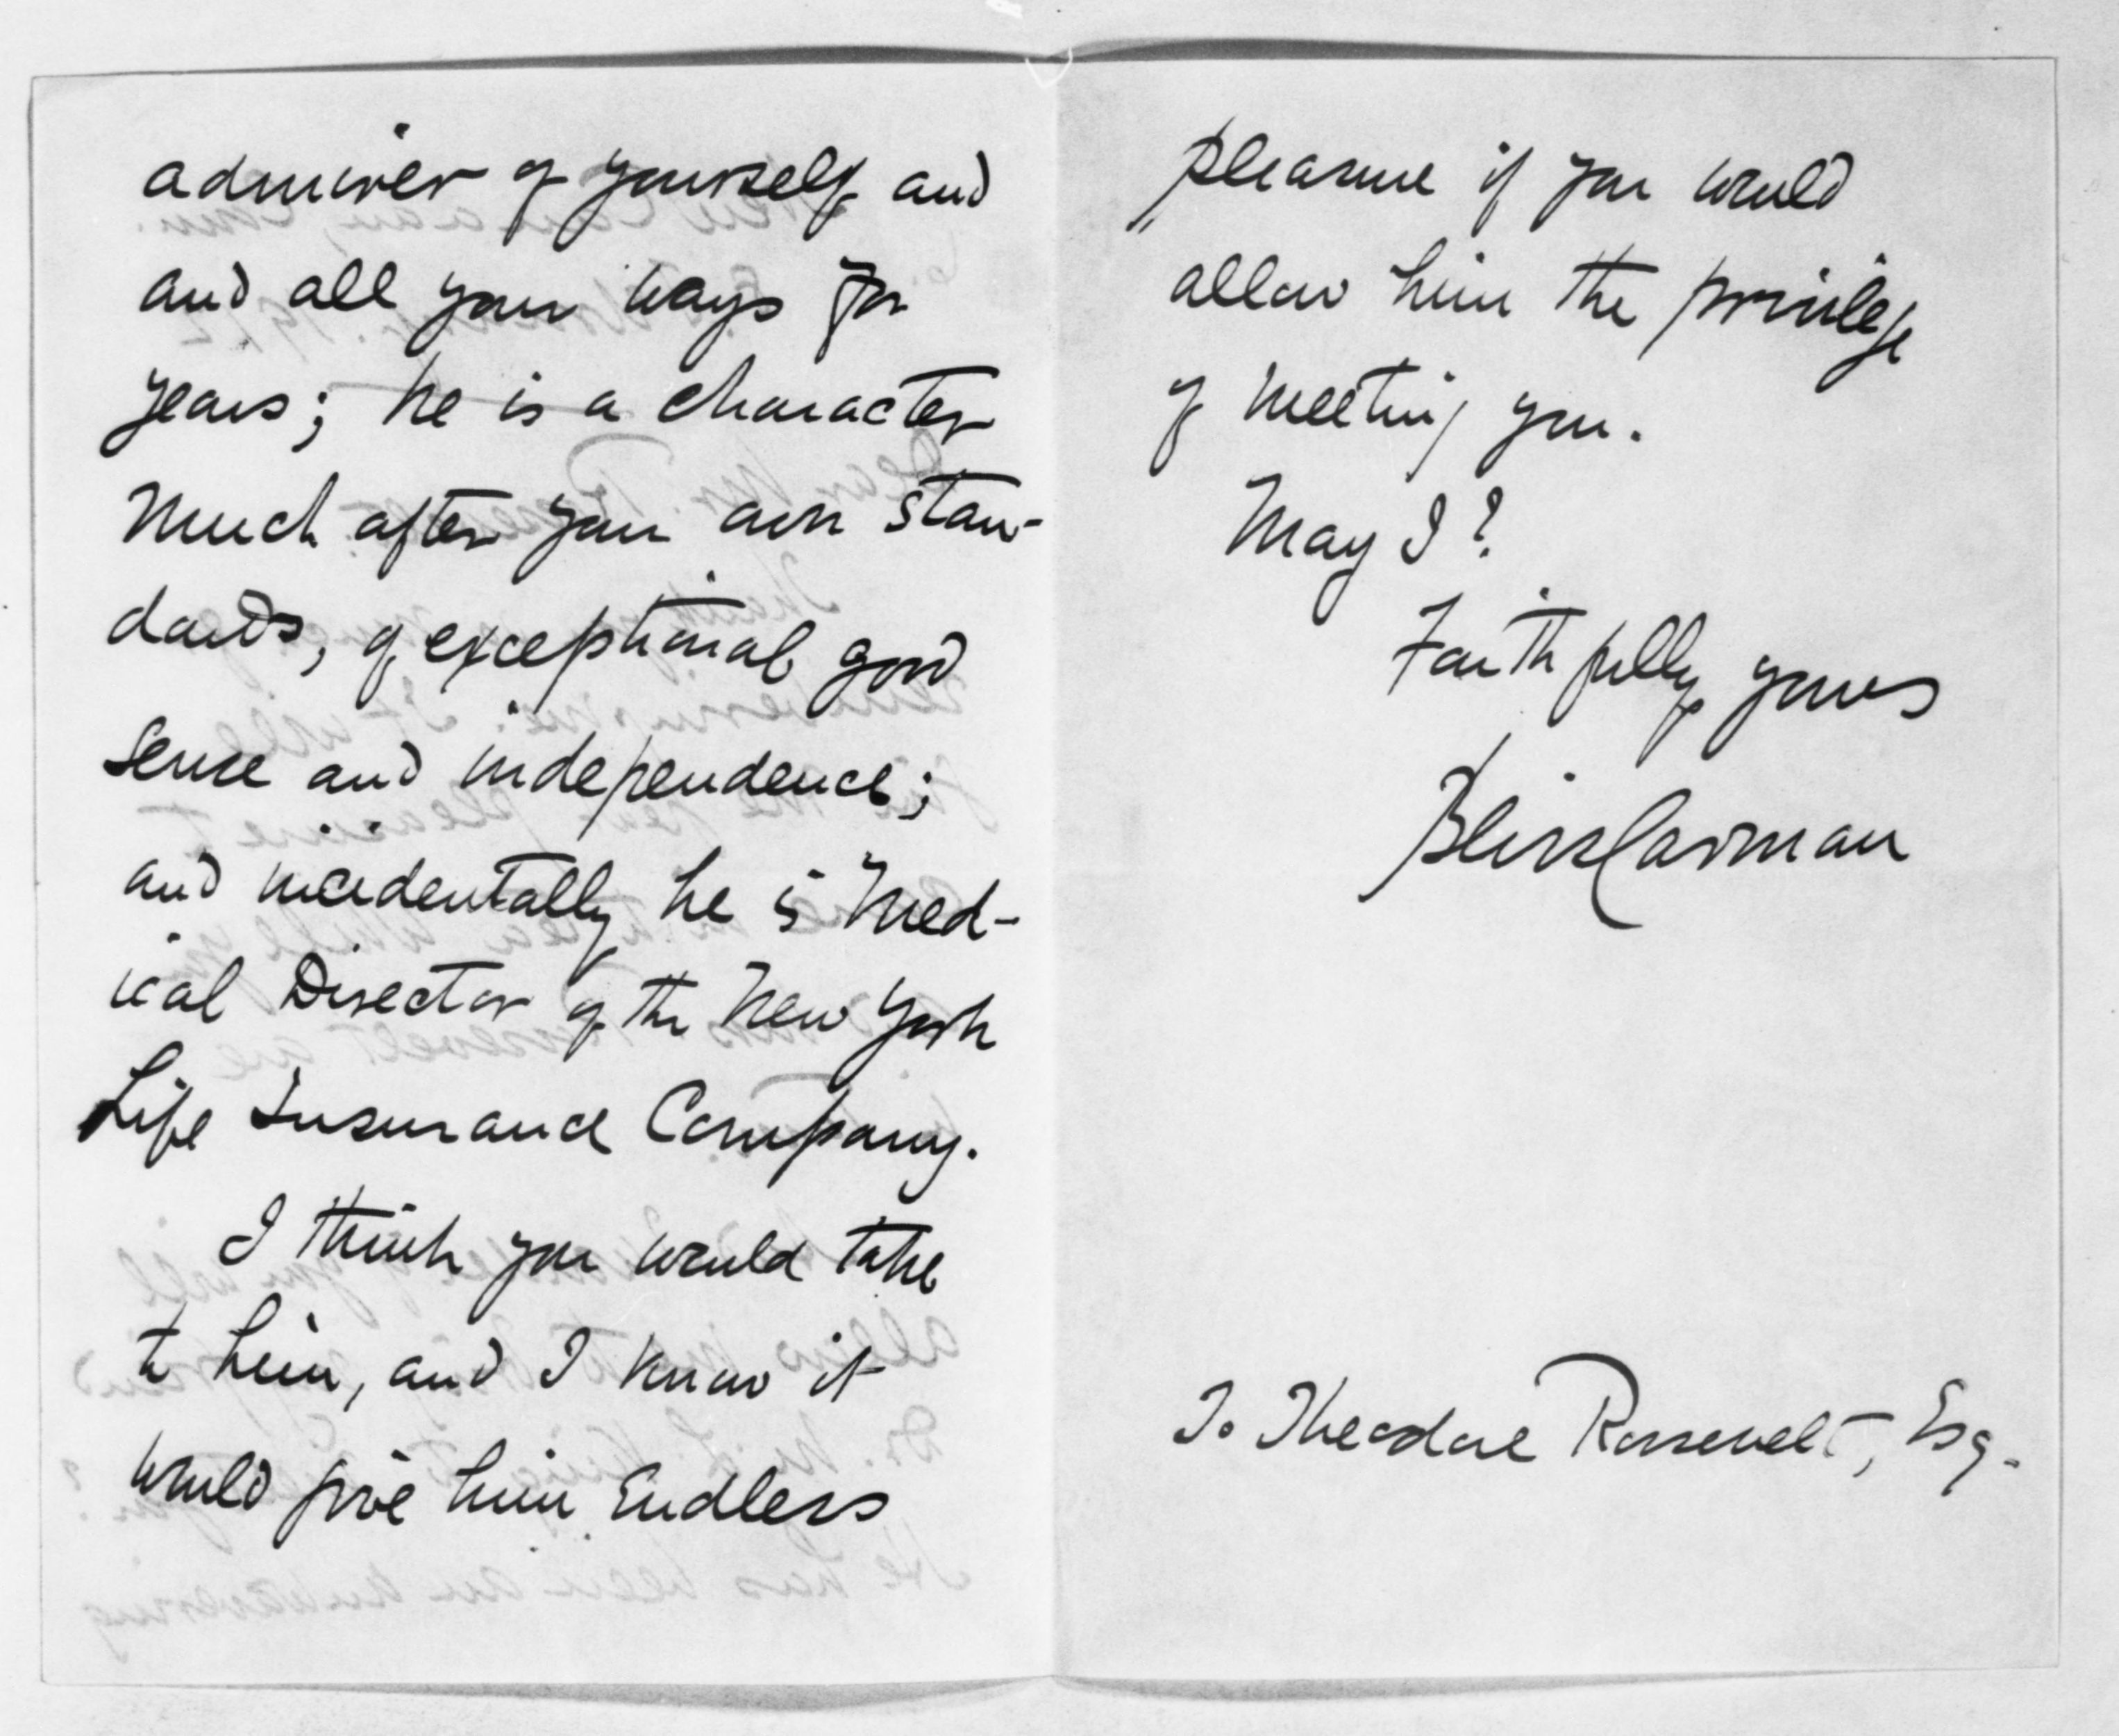 admirer of yourself and
and all your ways for
years; he is a character
much after your own stan-
dards, of exceptional good
sense and independence;
and incidentally he is Med-
ical Director of the New York
Life Insurance Company.
I think you would take
to him, and I know it
would give him endless
pleasure if you would
allow him the privilege
of meeting you.
May I?
Faithfully yours
Bliss Carman
To Theodore Roosevelt, Esq.